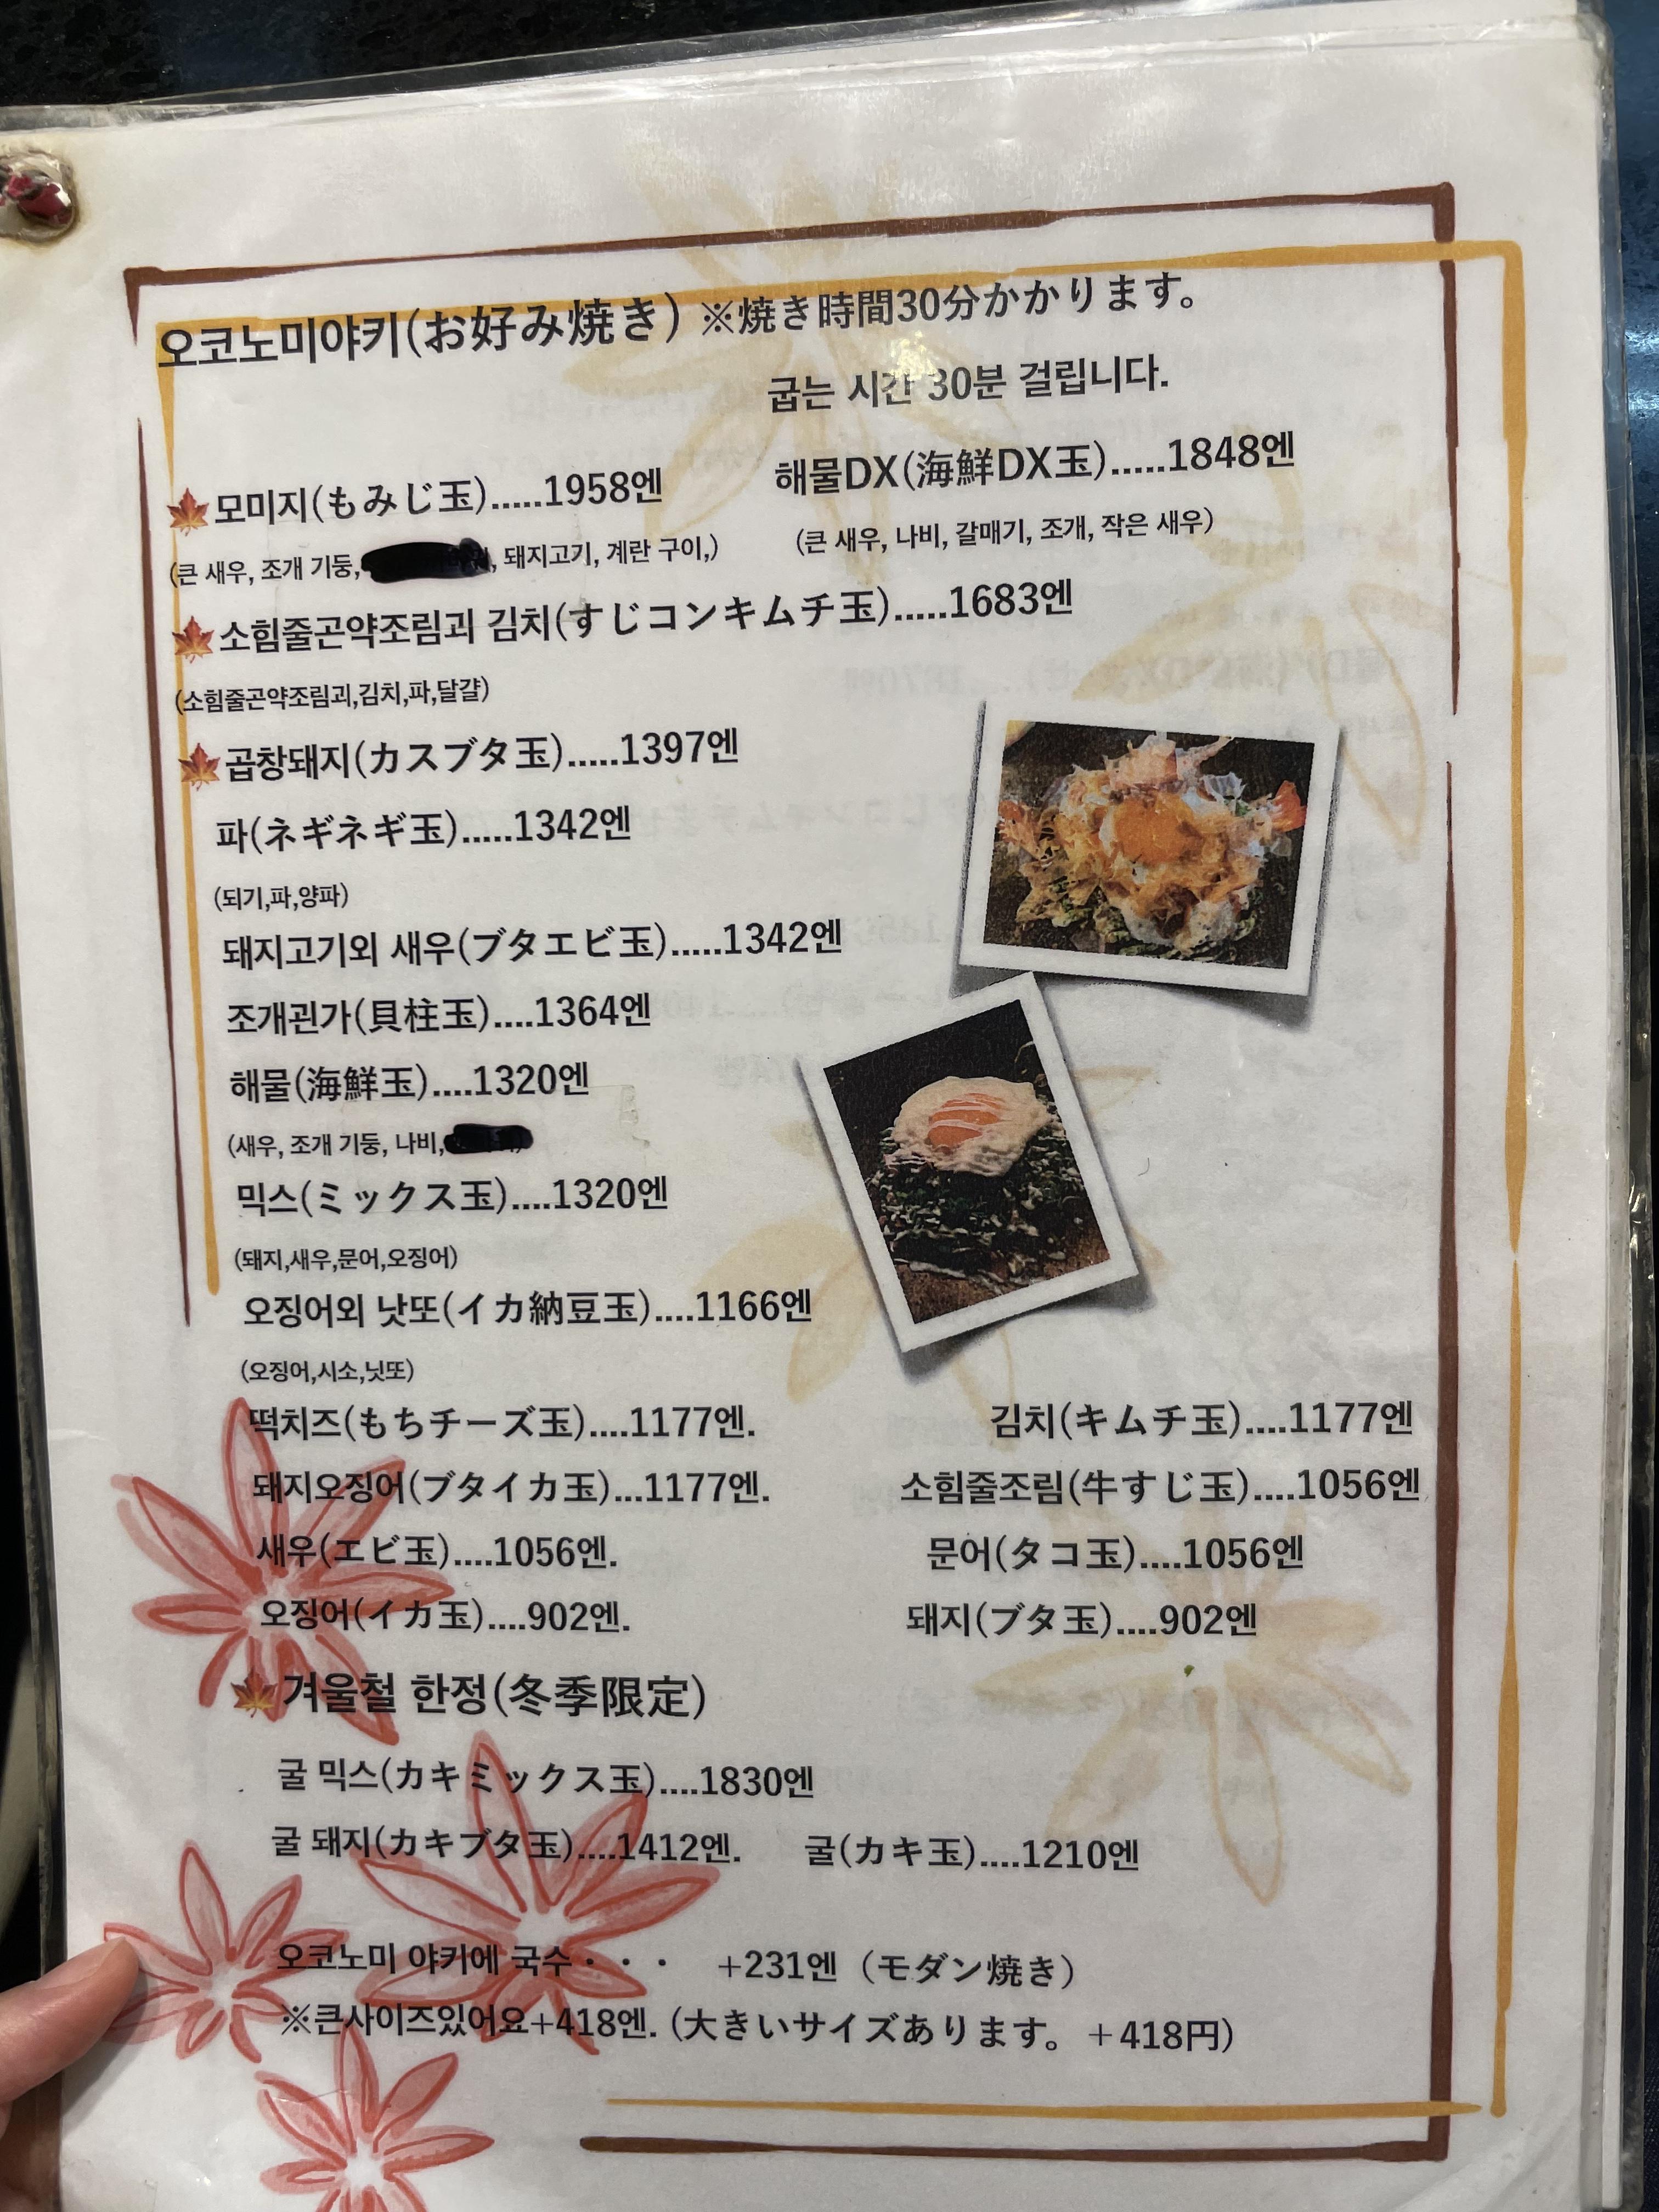 오코노미야키(お好み焼き) ※焼き時間30分かかります。
굽는 시간 30분 걸립니다.
모미지(もみじ玉).....1958엔
해물DX(海鮮DX玉).....1848엔
(큰 새우, 조개 기둥, , 돼지고기, 계란 구이,)
(큰 새우, 나비, 갈매기, 조개, 작은 새우)
소힘줄곤약조림괴 김치(すじコンキムチ玉).....1683엔
(소힘줄곤약조림괴,김치,파,달걀)
곱창돼지(カスブタ玉).....1397엔
파(ネギネギ玉).....1342엔
(되기,파,양파)
돼지고기외 새우(ブタエビ玉).....1342엔
조개괸가(貝柱玉)....1364엔
해물(海鮮玉)....1320엔
(새우, 조개 기둥, 나비,
믹스(ミックス玉)....1320엔
(돼지,새우,문어,오징어)
오징어외 낫또(イカ納豆玉)....1166엔
(오징어,시소,닛또)
떡치즈(もちチーズ玉)....1177엔.
김치(キムチ玉)....1177엔
돼지오징어(ブタイカ玉)...1177엔.
소힘줄조림(牛すじ玉)....1056엔
새우(エビ玉)....1056엔.
문어(タコ玉)....1056엔
오징어(イカ玉)....902엔.
돼지(ブタ玉)....902엔
겨울철 한정(冬季限定)
굴 믹스(カキミックス玉)....1830엔
굴 돼지(カキブタ玉)....1412엔.
굴(カキ玉)....1210엔
오코노미 야키에 국수・・・ +231엔（モダン焼き）
※큰사이즈있어요+418엔. (大きいサイズあります。＋418円)